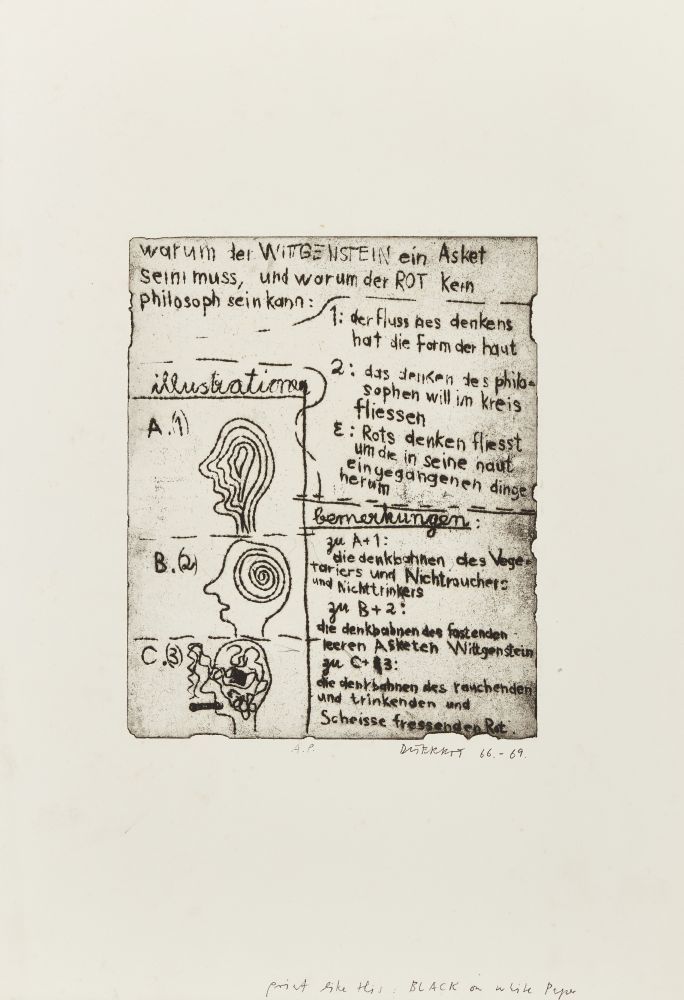 warum der WITTGENSTEIN ein Asket
sein muss, und warum der ROT kein
philosoph sein kann:
1: der fluss des denkens
hat die form der haut
2: das denken des philo-
sophen will im kreis
fliessen
3: Rots denken fliesst
um die in seine haut
eingegangenen dinge
herum
illustrationen
A.(1)
B.(2)
C.(3)
bemerkungen:
zu A+1:
die denkbahnen des Vege-
tariers und Nichtrauchers
und Nichttrinkers
zu B+2:
die denkbahnen des fastenden
leeren Asketen Wittgenstein
zu C+3:
die denkbahnen des rauchenden
und trinkenden und
Scheisse fressenden Rot.
A.P.
66.-69.
print like this: BLACK on white Paper